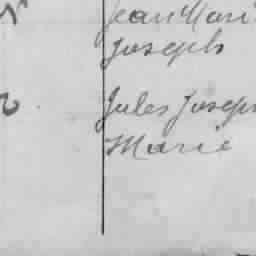 Jean Mari
Joseph
Jules Joseph
Marie